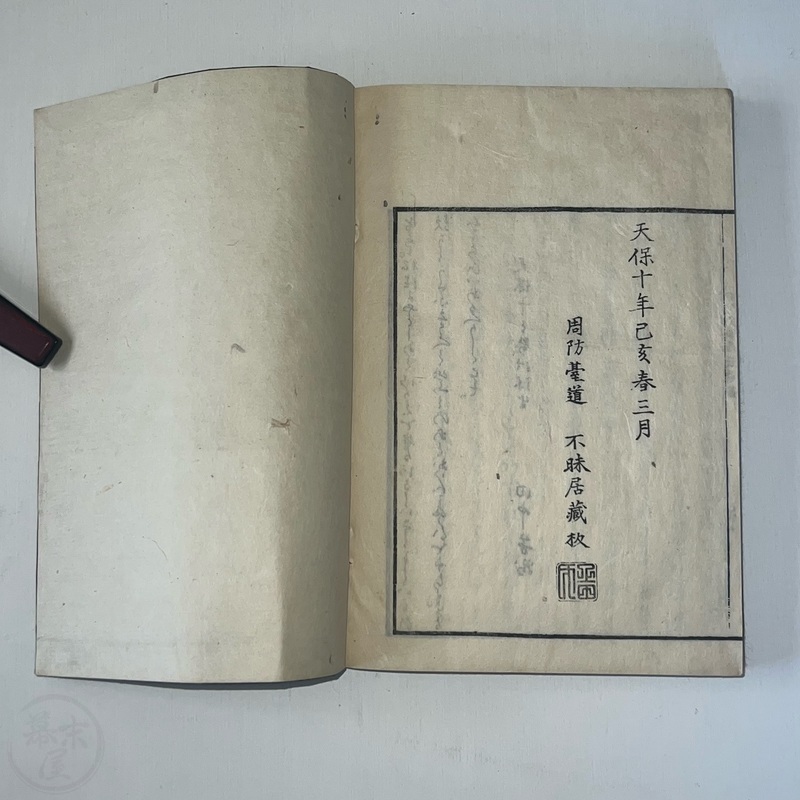 天保十年己亥春三月
周防臺道　不昧居藏板
幕末屋